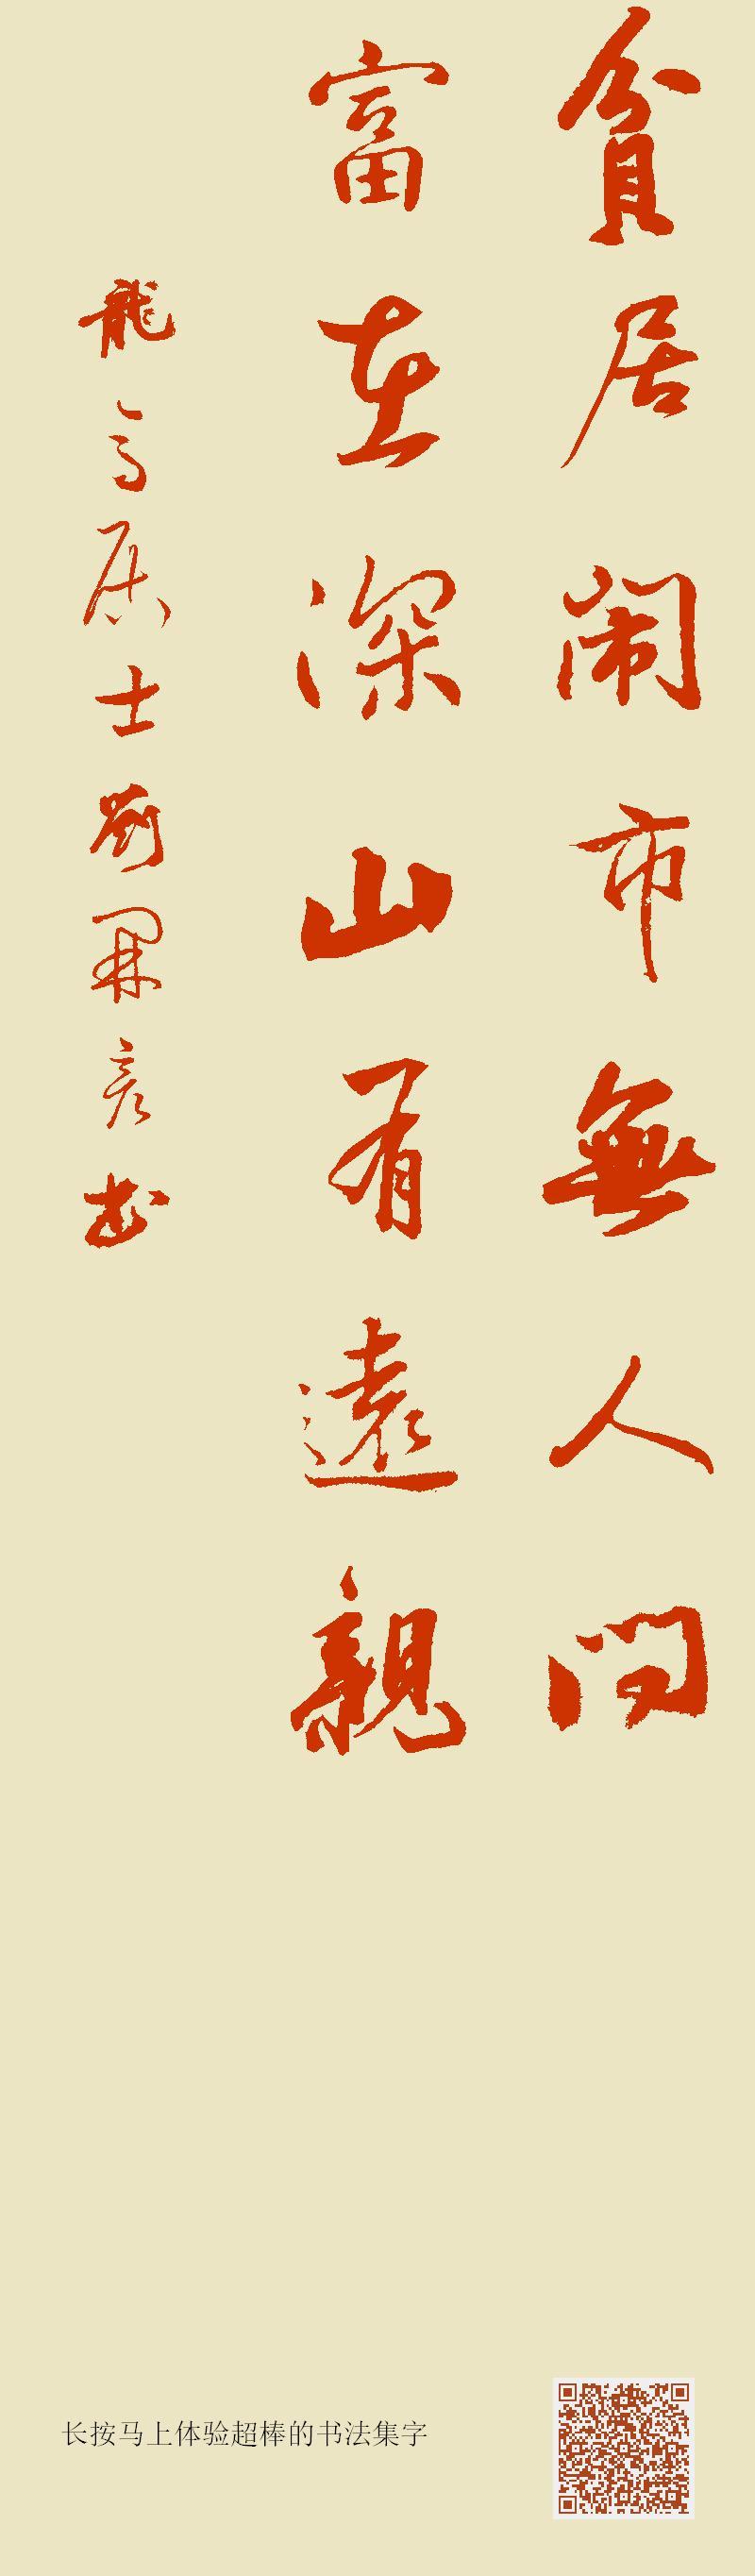 貧居闹市無人问
富在深山有遠親
龍亭居士劉开彦书
长按马上体验超棒的书法集字